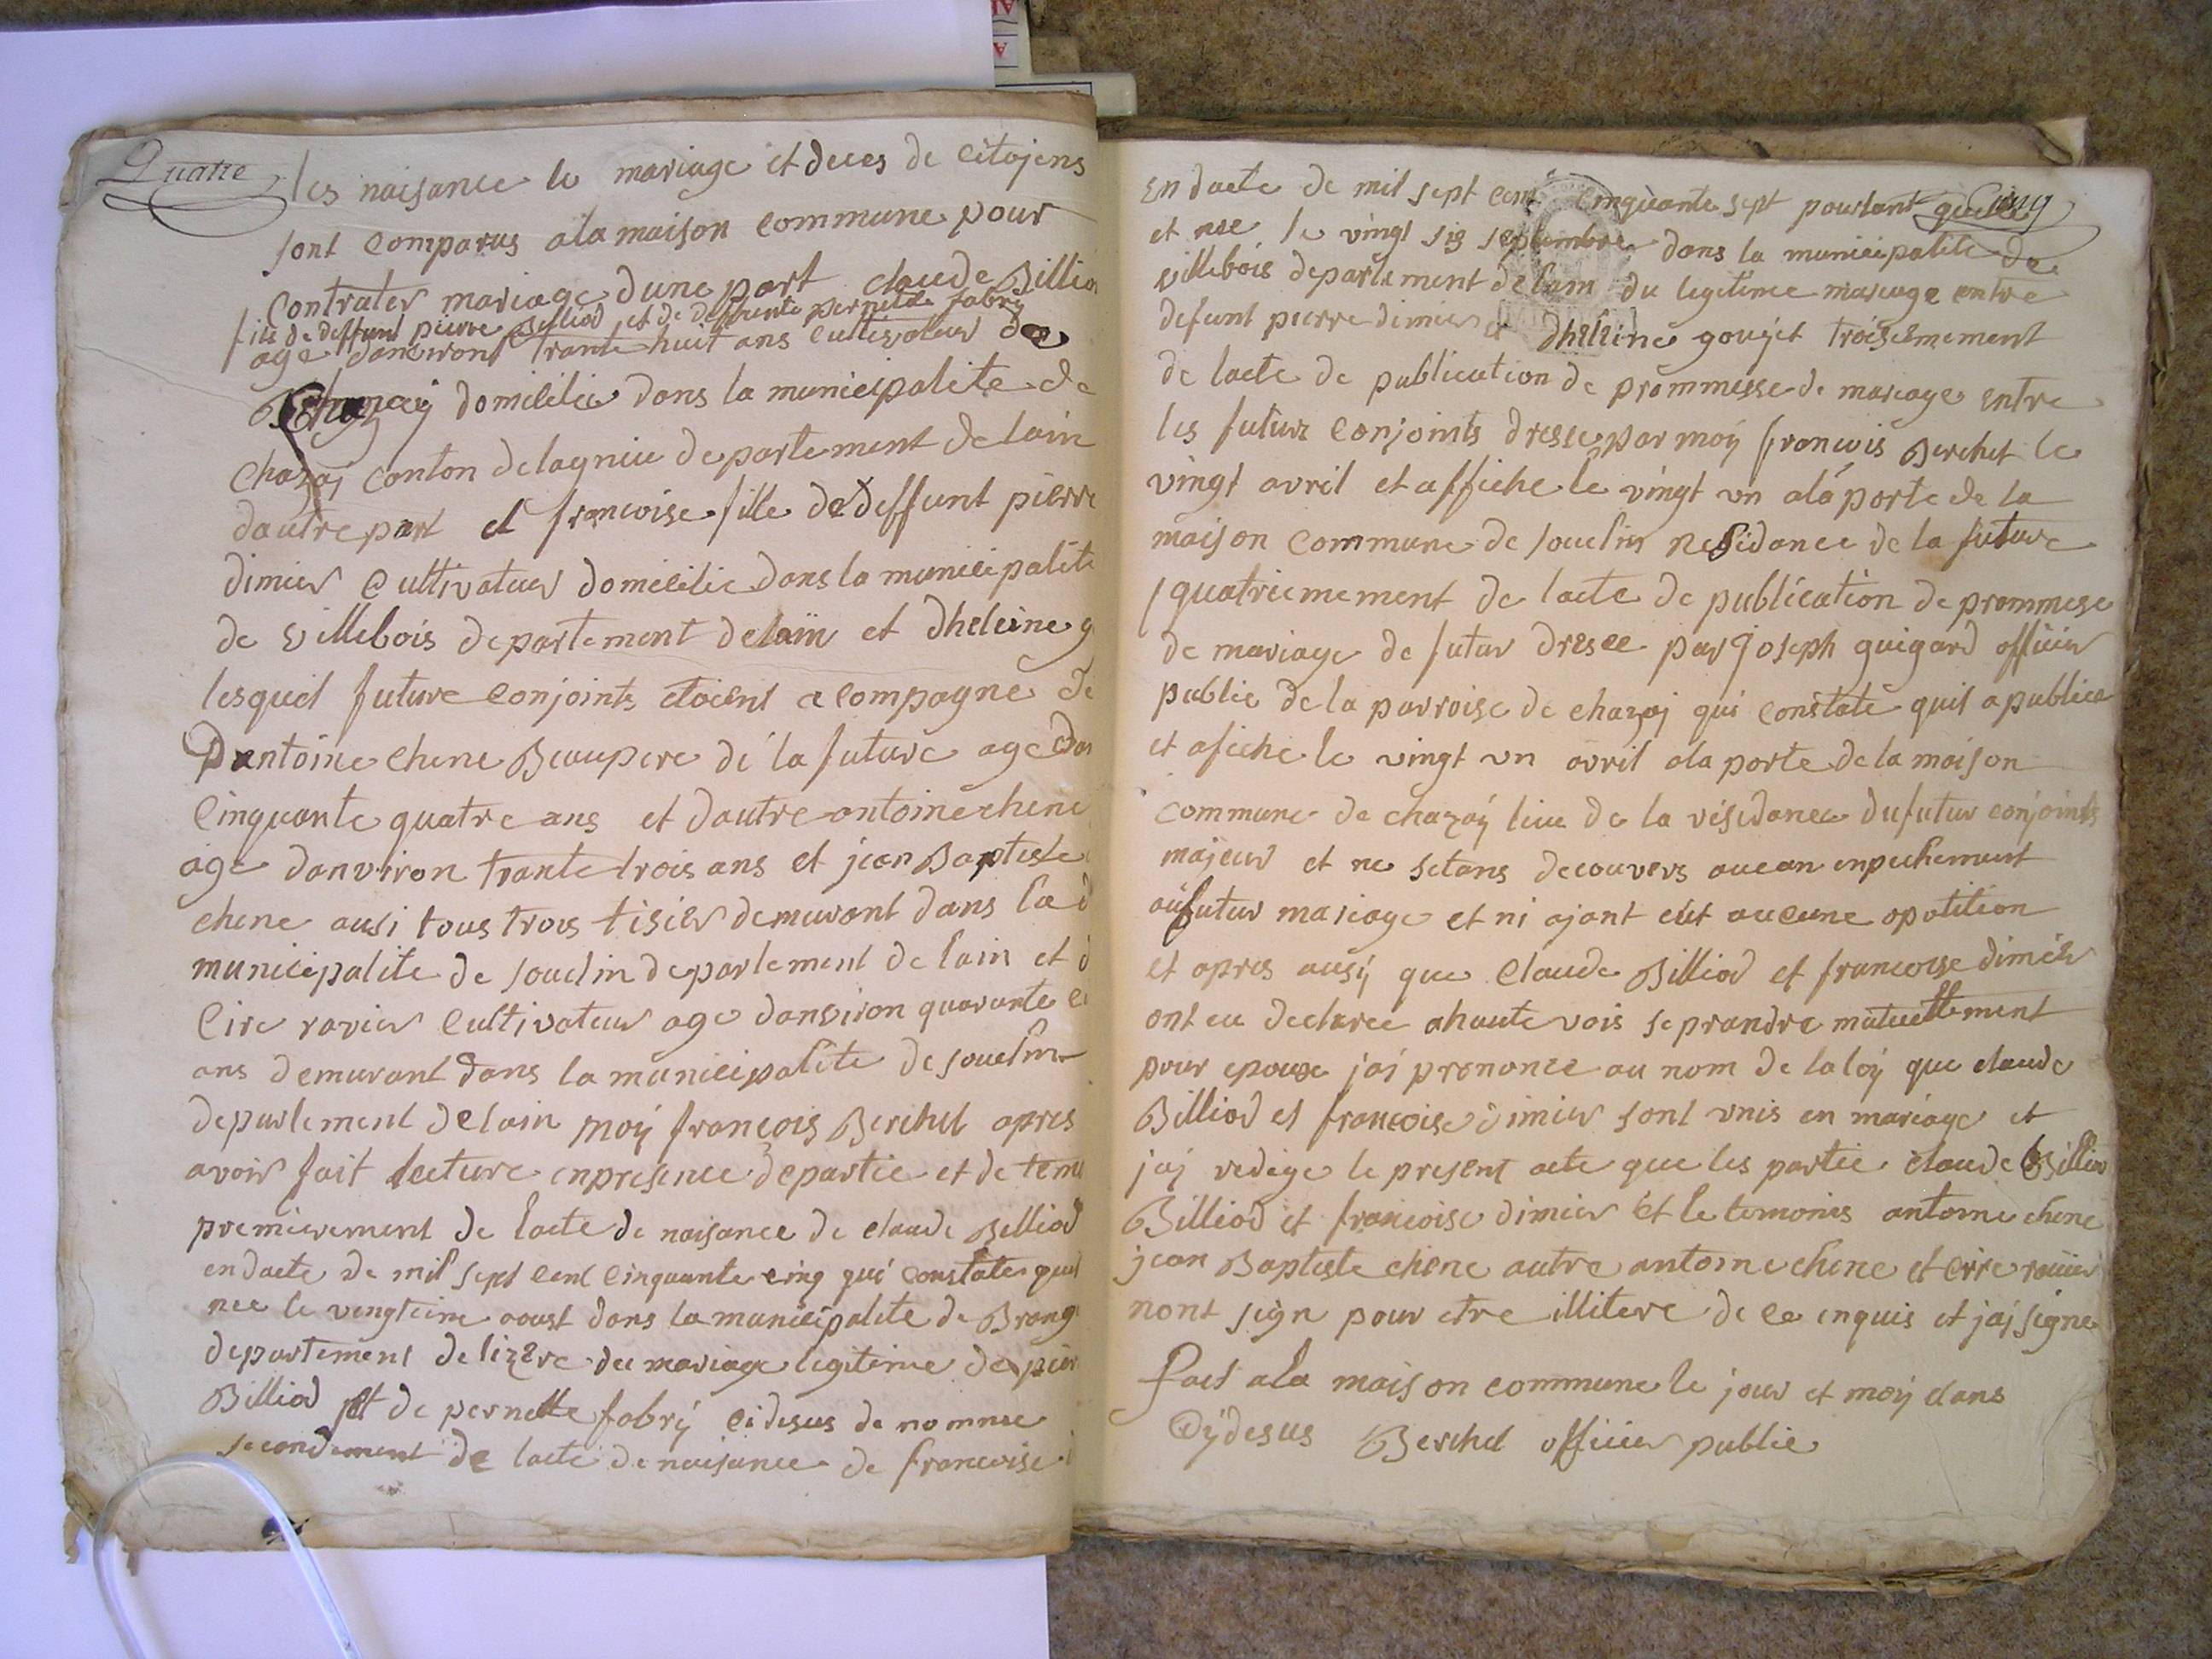 Quatre
les naisance le mariage et deces de citojens
sont comparus ala maison commune pour
contrater mariage dune part claude Billio
fils de deffunt pierre Billiod et de deffunte pernette fabry
age danviront trante huit ans cultivateur de
domicilie dans la municipalite de
chazaj canton delagniue departement de lain
dautre part et francoise fille de deffunt pierre
dimier cultivateur domicilie dans la municipalite
de villebois departement delain et dheleine g
lesquel future conjoints etoient acompagne de
Dantoine chene Beaupere de la future age dan
cinquante quatre ans et dautre antoine chene
age danviron trante trois ans et jean Baptiste
chene ausi tous trois tisier demurant dans la d
municipalite de souclin departement de lain et d
cire ravier cultivateur age danviron quarante
ans demurant dans la municipalite de souclin
departement delain moij francois Berchet apres
avoir fait lecture enpresence departie et de temu
premierement de lacte de naisance de claude Billiod
en dacte de mil sept cent cinquante cinq qui constate quil
nee le vengteime aoust dans la municipalite de Brang
departement delizere du mariage legitime de pier
Billiod et de pernette fabrij cidesus de nommee
secondement de lacte de naisance de francoise
Cinq
En dacte de mil sept cent cinquante sept pourtant quelle
et nee le vingt sis septembre dans la municipalite de
villebois departement delain du legitime mariage entre
defunt pierre dimier et dheleine goujet troisiemement
de lacte de publication de prommesse de mariage entre
les futur conjoints dresse par moij francois Berchet le
vingt avril et affiche le vingt un ala porte de la
maison commune de souclin residance de la future
quatriemement de lacte de publication de prommese
de mariage de futur dresee par joseph guigard officier
public de la parroise de chazaj qui constate quil a publiee
et afiche le vingt un avril ala porte de la maison
commune de chazaij lieu de la residance du futur conjoints
majeur et ne setans decouvers aucun enpechement
au futur mariage et ni ajant eut aucune opotition
et apres ausij que Claude Billiod et francoise dimier
ont eu declaree ahaute vois se prandre mutuellement
pour epouse jaj prononce au nom de la loij que claude
Billiod et francoise dimier sont unis en mariage et
jaj redige le present acte que les partie claude Billio
Billiod et francoise dimier et le temonis antoine chene
jean Baptiste chene autre antoine chene et cire ravier
nont sign pour etre illitere de ce enquis et jaj signe
fait ala maison commune le jour et moij dans
Cydesus Berchet officier public